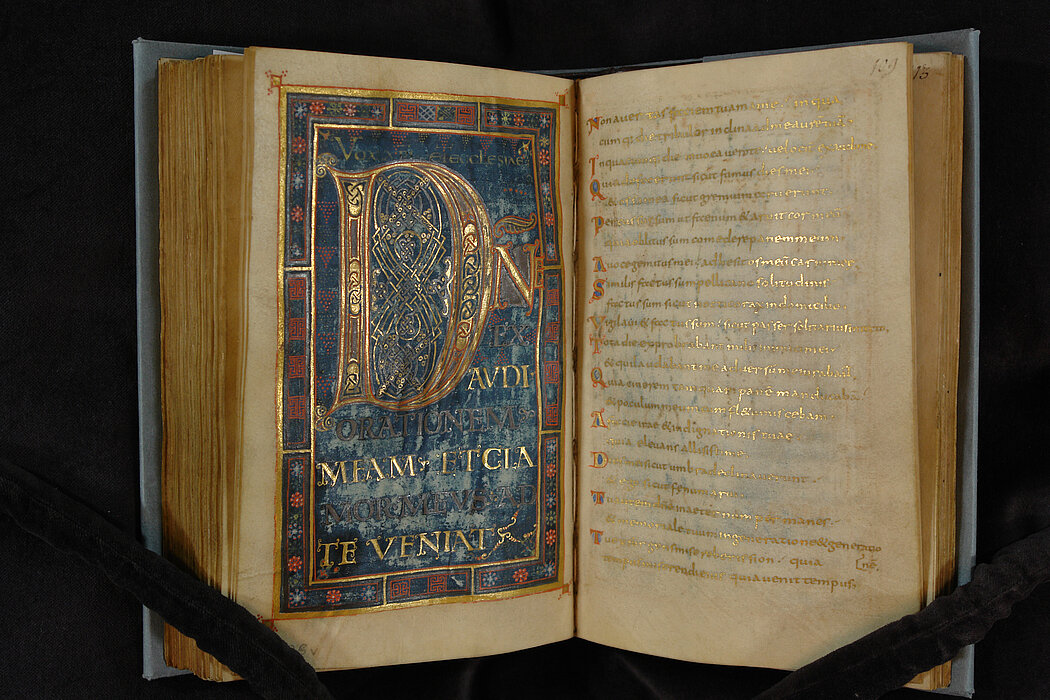 VOX ECCLESIAE
DN
EX
AVDI
ORATIONEM
MEAM ET CLA
MOR MEVS AD
TE VENIAT
Non avertas faciem tuam a me in qua
cumq; die tribulor inclina ad me aurem tuam
In quacumq; die invocavero te velociter exaudi me
Quia sicut fumus dies mei
sicut gremium
Percussus sum ut foenum & aruit cor meum
quia oblitus sum comedere panem meum
A voce gemitus mei adhesit os meum carni meae
Similis factus sum pellicano solitudinis
factus sum sicut nycticorax in domicilio
Vigilavi & factus sum sicut passer solitarius in tecto
Tota die exprobrabant mihi inimici mei
& qui laudabant me adversum me iurabant
Quia cinerem tamquam panem manducabam
& poculum meum cum fletu miscebam
A facie irae & indignationis tuae
quia elevans allisisti me
Dies mei sicut umbra declinaverunt
& ego sicut fenum arui
Tu autem dne in aeternum permanes
& memoriale tuum in generatione & generatio
nē
Tu exurgens misereberis sion quia
tempus miserendi eius quia venit tempus